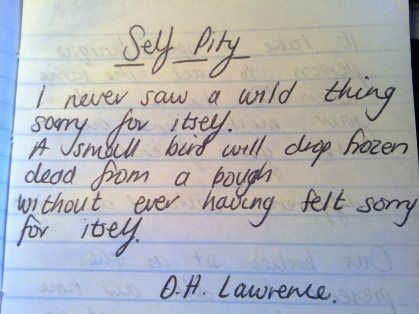 Self Pity
I never saw a wild thing
sorry for itself.
A small bird will drop frozen
dead from a bough
without ever having felt sorry
for itself.
D.H. Lawrence.